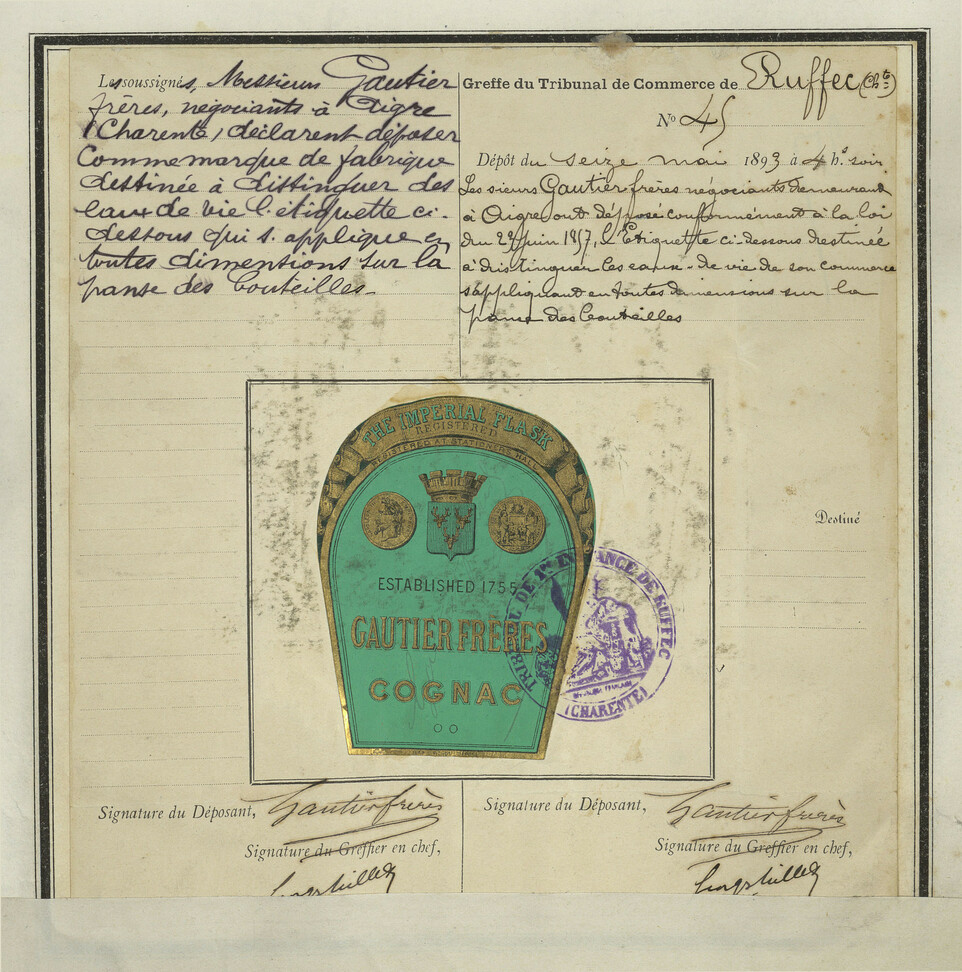 Les soussignés, Messieurs Gautier
frères, négociants à Aigre
(Charente) déclarent déposer
Comme marque de fabrique
destinée à distinguer des
eaux de vie l'étiquette ci-
dessous qui s'applique en
toutes dimentions sur la
panse des bouteilles.
Greffe du Tribunal de Commerce de Ruffec (Chte)
No 45
Dépôt du seize mai 1893 à 4 h. soir
Les sieurs Gautier frères négociants demeurant
à Aigre ont déposé conformément à la loi
du 22 juin 1857, l'Etiquette ci-dessous destinée
à distinguer les eaux-de vie de son commerce
s'appliquant en toutes dimensions sur la
panse des bouteilles
THE IMPERIAL FLASK
REGISTERED
REGISTERED AT STATIONERS HALL
ESTABLISHED 1755
GAUTIER FRÈRES
COGNAC
TRIBUNAL DE 1re INSTANCE DE RUFFEC
(CHARENTE)
Destiné
Signature du Déposant, Gautier frères
Signature du Greffier en chef,
Signature du Déposant, Gautier frères
Signature du Greffier en chef,